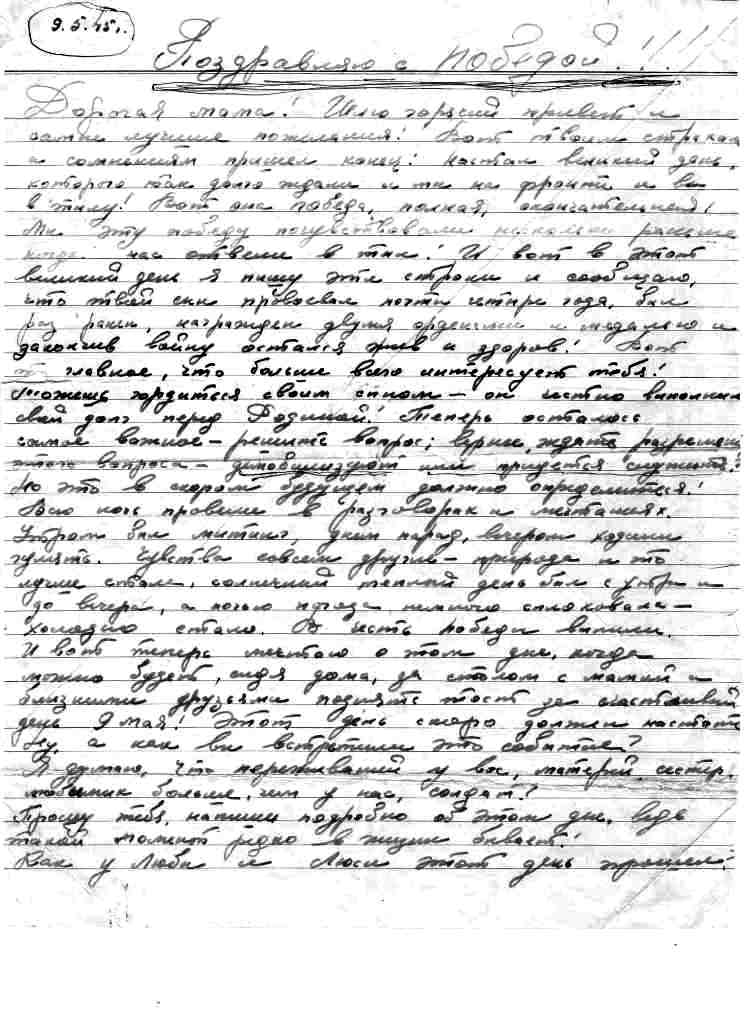 9.5.45г.
Поздравляю с победой!!!!
Дорогая мама! Шлю горячий привет и
самые лучшие пожелания! Вот твоим страхам
и сомнениям пришел конец! Настал великий день,
которого так долго ждали и мы на фронте и вы
в тылу! Вот она победа, полная, окончательная!
Мы эту победу почувствовали несколько раньше
когда нас отвели в тыл! И вот в этот
великий день я пишу эти строки и сообщаю,
что твой сын провоевал почти четыре года, был
раз ранен, награжден двумя орденами и медалью и
закончив войну остался жив и здоров! Вот
главное, что больше всего интересует тебя!
Можешь гордиться своим сыном — он честно выполнил
свой долг перед Родиной! Теперь осталось
самое важное — решить вопрос; вернее, ждать разрешения
этого вопроса — демобилизуют или придется служить?
Но это в скором будущем должно определиться!
Всю ночь провели в разговорах и мечтаниях.
Утром был митинг, днем парад, вечером ходили
гулять. Чувства совсем другие — природа и то
лучше стала, солнечный теплый день был с утра и
до вечера, а ночью погода немного сплоховала —
холодно стало. В честь победы выпили.
И вот теперь мечтаю о том дне, когда
можно будет, сидя дома, за столом с мамой и
близкими друзьями поднять тост за счастливый
день 9 мая! Этот день скоро должен настать
Ну, а как вы встретили это событие?
Я думаю, что переживаний у вас, матерей, сестер,
любимых больше, чем у нас, солдат?
Прошу тебя, напиши подробно об этом дне, ведь
такой момент редко в жизни бывает!
Как у Любы и Люси этот день прошел?